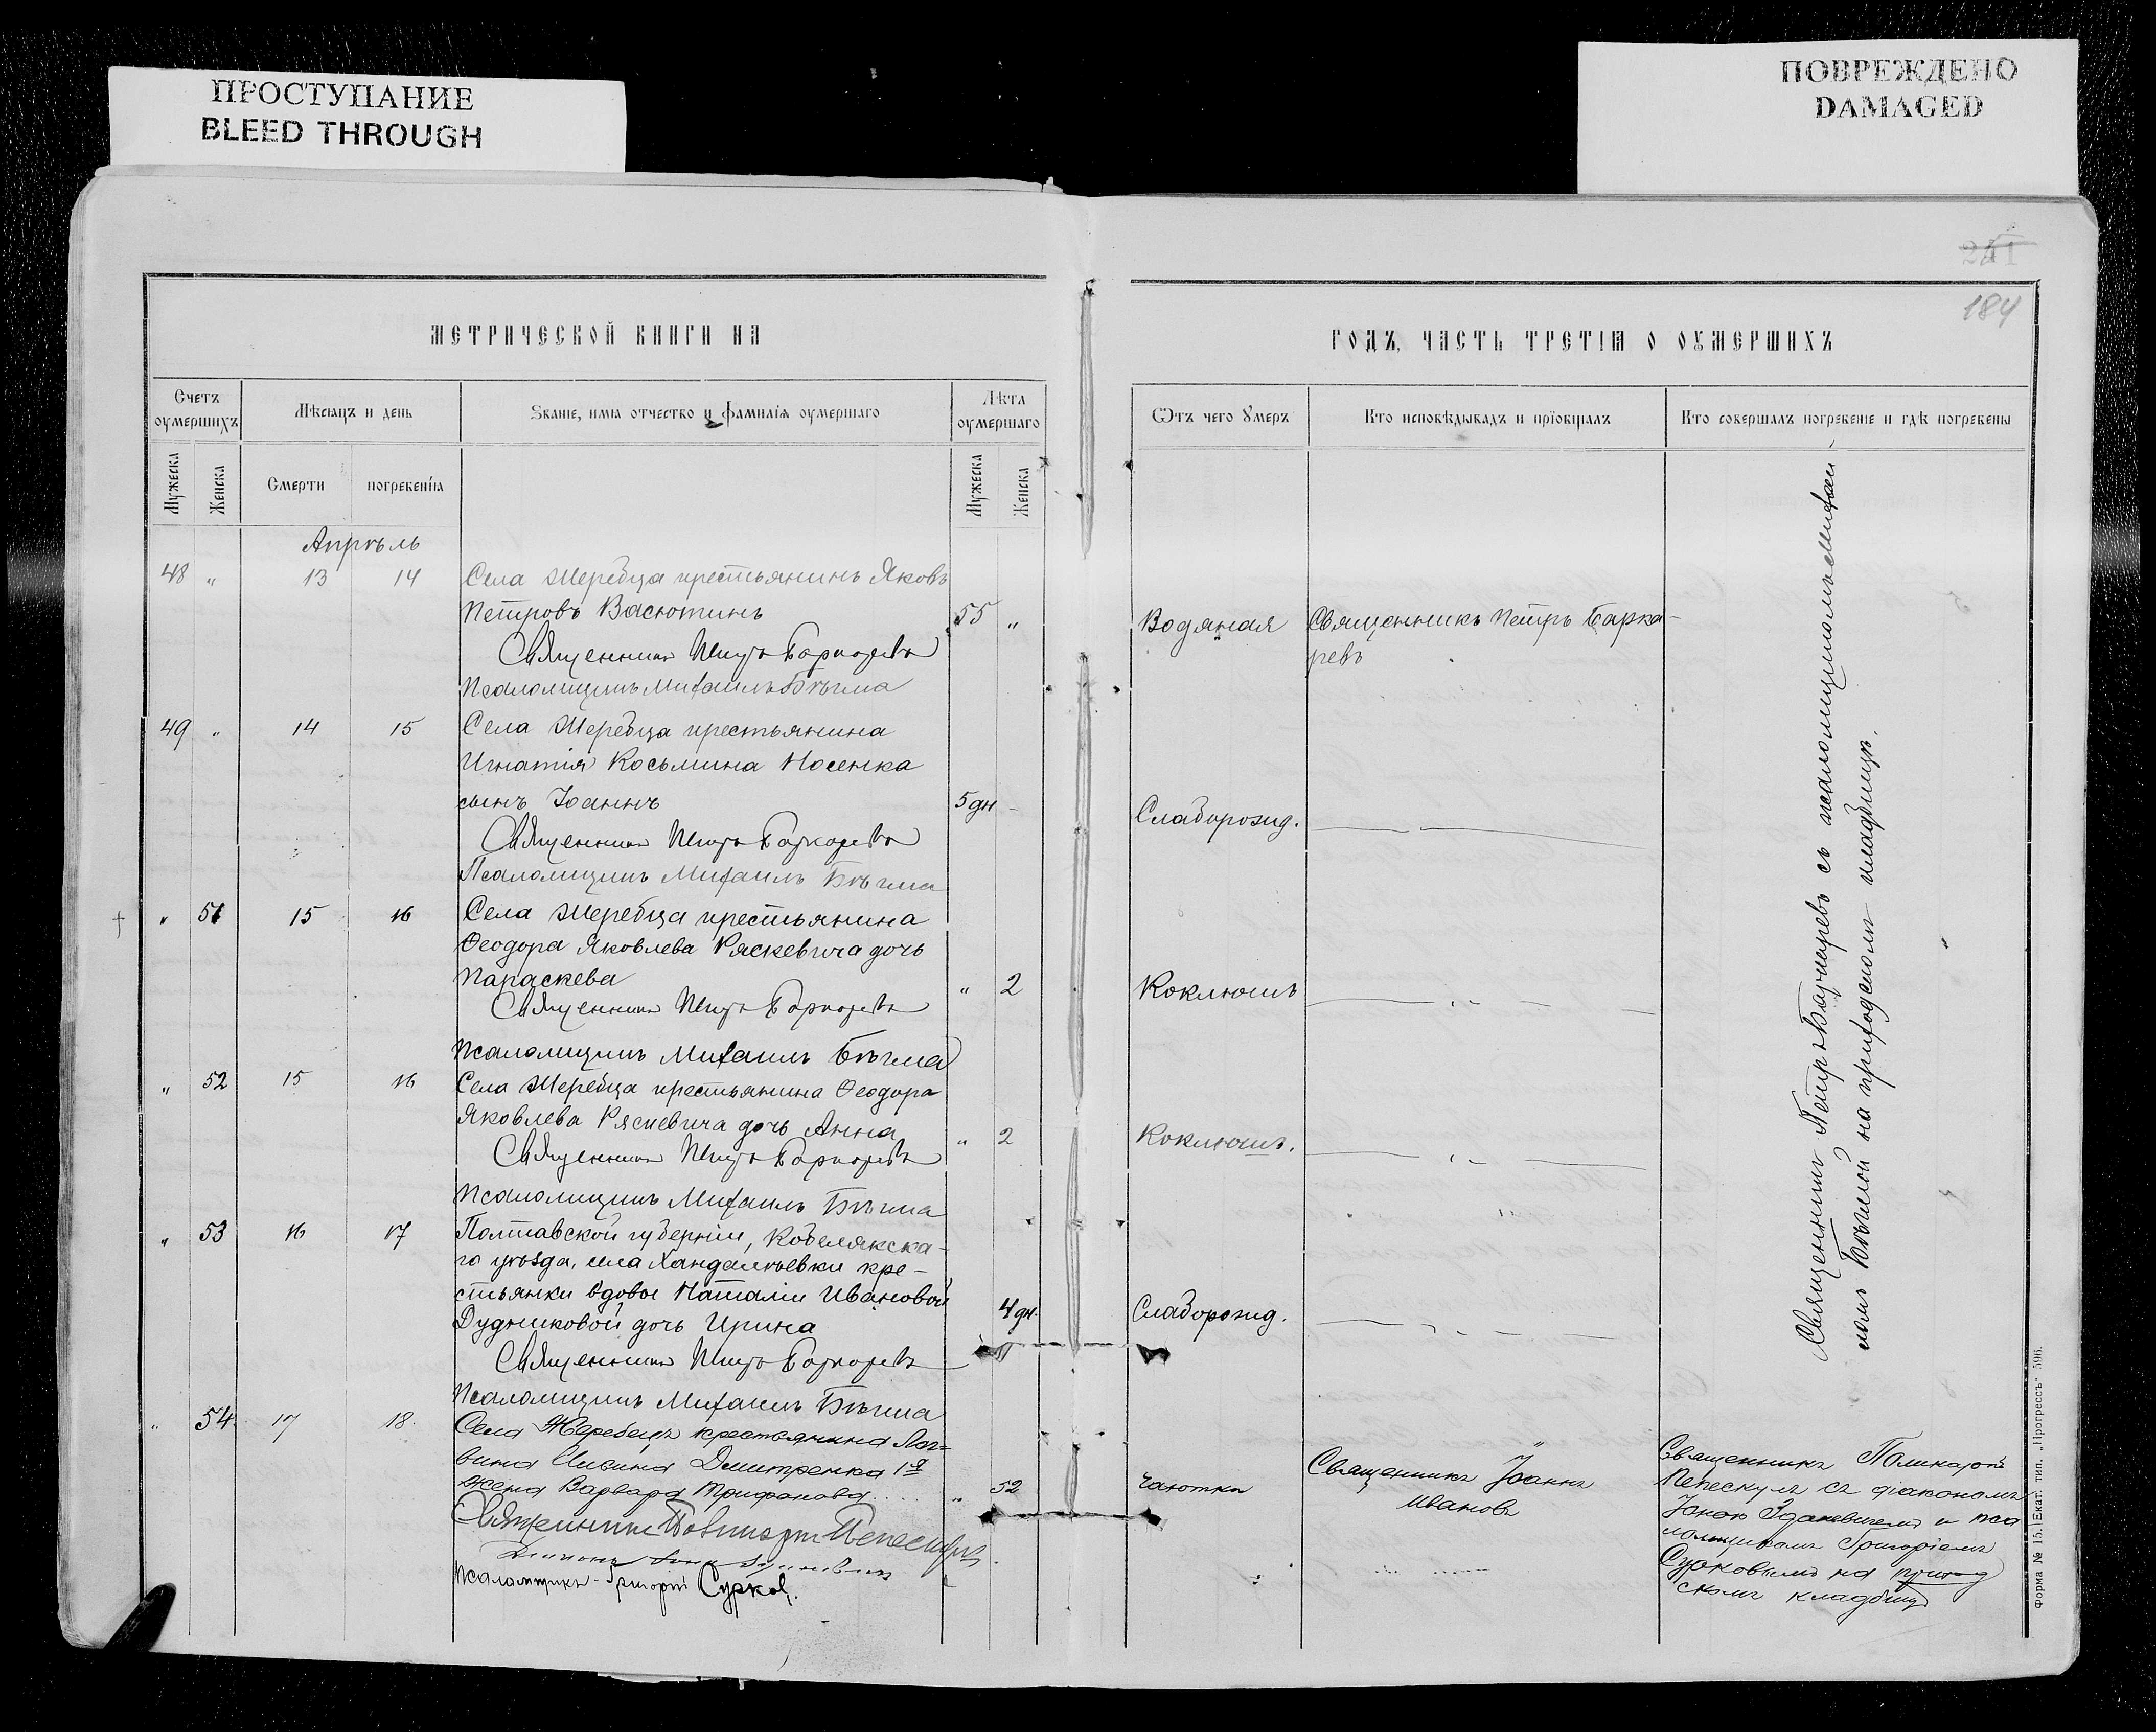 ПРОСТУПАНИЕ
BLEED THROUGH
ПОВРЕЖДЕНО
DAMAGED
251
184
МЕТРИЧЕСКОЙ КНИГИ НА
ГОДЪ, ЧАСТЬ ТРЕТІЯ О ОУМЕРШИХЪ
Счетъ оумершихъ
Мѣсяцъ и день
Званіе, имя отчество и фамилія оумершаго
Лѣта оумершаго
Мужеска
Женска
Смерти
погребенія
Мужеска
Женска
Отъ чего умеръ
Кто исповѣдывалъ и пріобщалъ
Кто совершалъ погребеніе и гдѣ погребены
Апрѣль
48 " 13 14 Села Жеребца крестьянинъ Яковъ
Петровъ Васютинъ 55 "
Священникъ Петръ Баркаревъ
Псаломщикъ Михаилъ Бѣгма
Водяная
Священникъ Петръ Барка-
ревъ
49 " 14 15 Села Жеребца крестьянина
Игнатія Косьмина Носенка
сынъ Іоаннъ 5 дн -
Священникъ Петръ Баркаревъ
Псаломщикъ Михаилъ Бѣгма
Слаборожд.
" 51 15 16 Села Жеребца крестьянина
Ѳеодора Яковлева Ряскевича дочь
Параскева " 2
Священникъ Петръ Баркаревъ
Псаломщикъ Михаилъ Бѣгма
Коклюшъ
" 52 15 16 Села Жеребца крестьянина Ѳеодора
Яковлева Ряскевича дочь Анна " 2
Священникъ Петръ Баркаревъ
Псаломщикъ Михаилъ Бѣгма
Коклюшъ.
" 53 16 17 Полтавской губерніи, Кобелякска-
го уѣзда, села Хандалѣевки кре-
стьянки вдовы Наталіи Ивановой
Дудниковой дочь Ирина 4 дн.
Священникъ Петръ Баркаревъ
Псаломщикъ Михаилъ Бѣгма
Слаборожд.
Священникъ Петръ Баркаревъ съ псаломщикомъ Михаи-
ломъ Бѣгмой на приходскомъ кладбищѣ.
" 54 17 18. Села Жеребецъ крестьянина Лог-
вина Дмитренка 1я
жена Варвара Трифонова " 52
Священникъ Поликарпъ Пепескулъ
Псаломщикъ Григорій Сурков.
Чахотки
Священникъ Іоаннъ
Ивановъ
Священникъ Поликарпъ
Пепескулъ съ діакономъ
Іоною и пса
ломщикомъ Григоріемъ
Сурковымъ на приход
скомъ кладбищѣ
Форма № 15. Екат. тип. „Прогрессъ" 596.